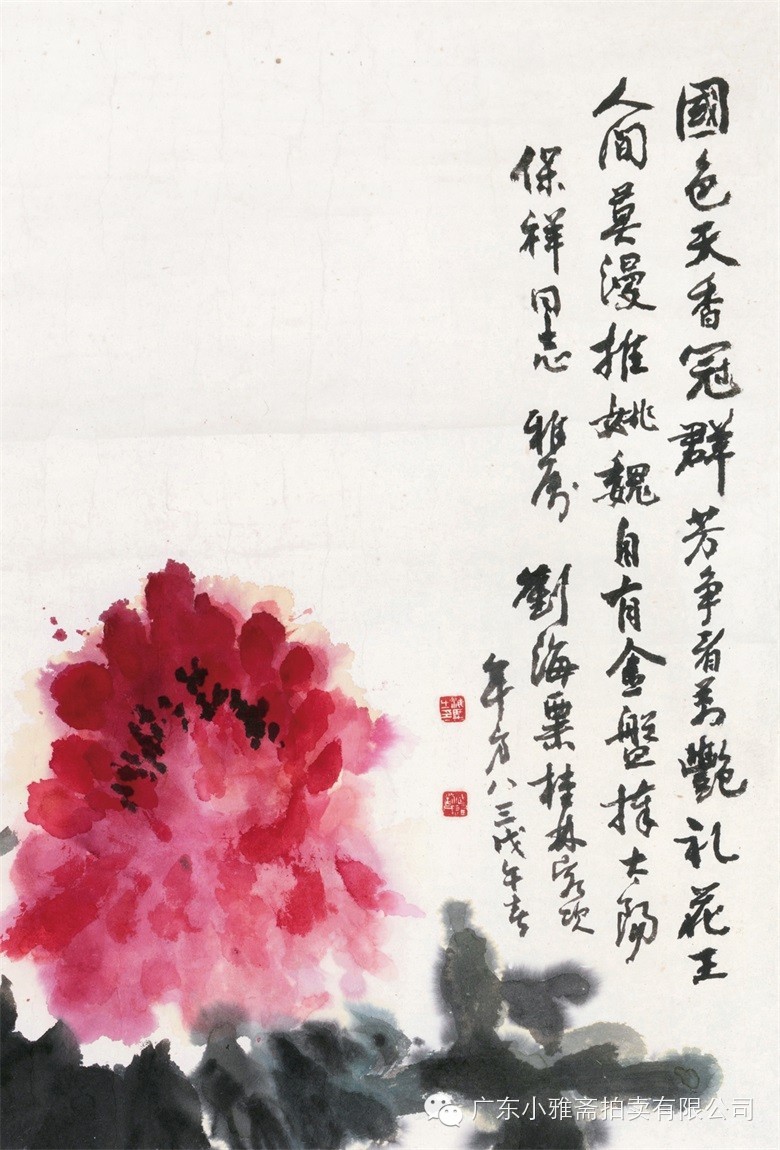 國色天香冠群芳争看萬艷礼花王
人间莫漫推姚魏自有金盤捧太陽
保祥同志 雅属 劉海粟桂林客次
年方八三戊午春
广东小雅斋拍卖有限公司